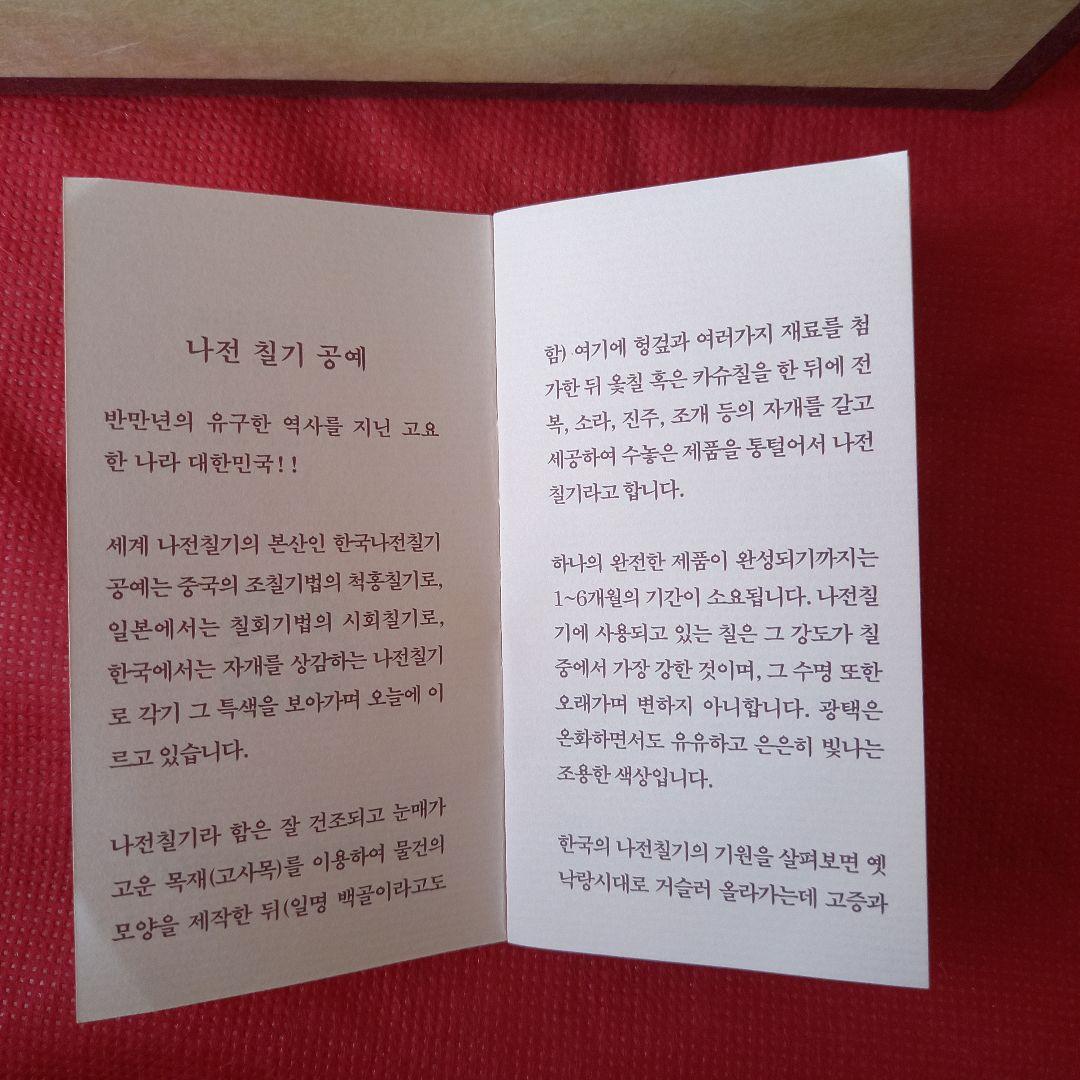 나전 칠기 공예
반만년의 유구한 역사를 지닌 고요
한 나라 대한민국!!
세계 나전칠기의 본산인 한국나전칠기
공예는 중국의 조칠기법의 척홍칠기로,
일본에서는 칠회기법의 시회칠기로,
한국에서는 자개를 상감하는 나전칠기
로 각기 그 특색을 보아가며 오늘에 이
르고 있습니다.
나전칠기라 함은 잘 건조되고 눈매가
고운 목재(고사목)를 이용하여 물건의
모양을 제작한 뒤(일명 백골이라고도
함) 여기에 헝겊과 여러가지 재료를 첨
가한 뒤 옻칠 혹은 카슈칠을 한 뒤에 전
복, 소라, 진주, 조개 등의 자개를 갈고
세공하여 수놓은 제품을 통털어서 나전
칠기라고 합니다.
하나의 완전한 제품이 완성되기까지는
1~6개월의 기간이 소요됩니다. 나전칠
기에 사용되고 있는 칠은 그 강도가 칠
중에서 가장 강한 것이며, 그 수명 또한
오래가며 변하지 아니합니다. 광택은
온화하면서도 유유하고 은은히 빛나는
조용한 색상입니다.
한국의 나전칠기의 기원을 살펴보면 옛
낙랑시대로 거슬러 올라가는데 고증과